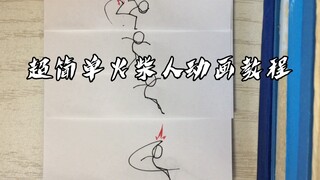 超简单火柴人动画教程